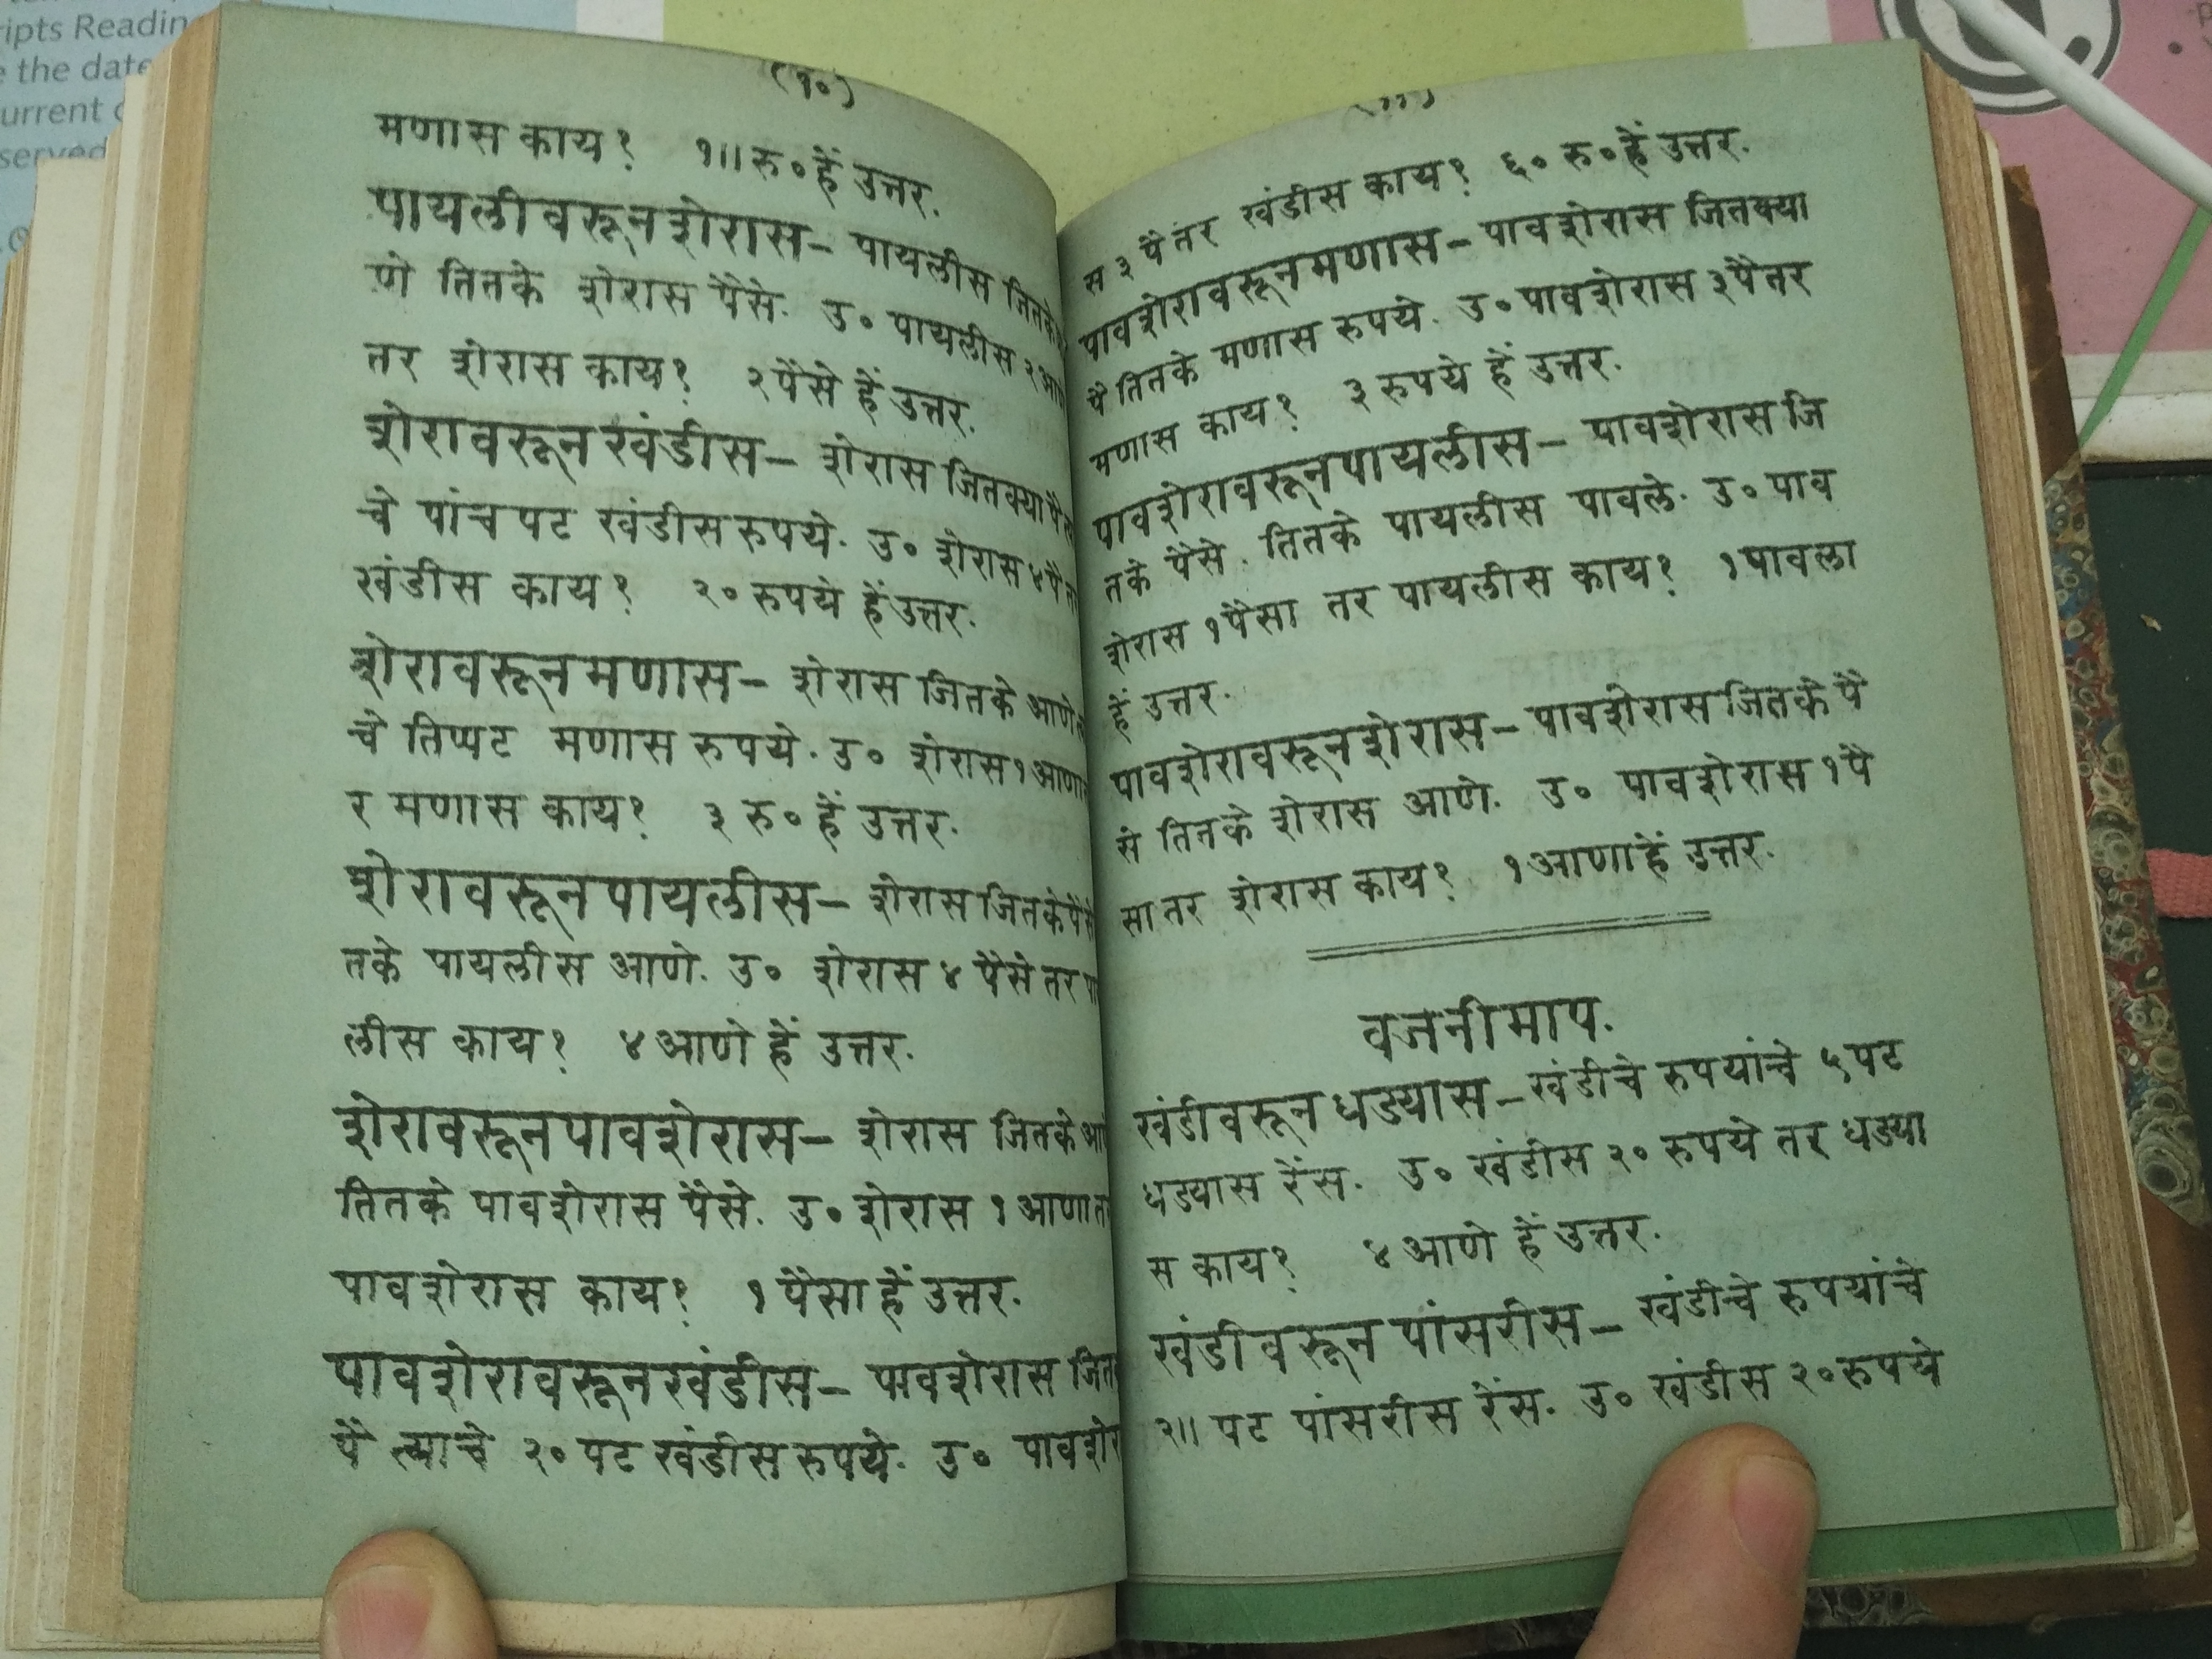 ripts Reading
the date
urrent
served
(१०)
मणास काय? १॥ रु० हें उत्तर.
पायलीवरून शेरास— पायलीस जितके
णे तितके शेरास पैसे. उ० पायलीस २ आणे
तर शेरास काय? २ पैसे हें उत्तर.
शेरावरून खंडीस— शेरास जितक्या पै त्या
चे पांच पट खंडीस रुपये. उ० शेरास ४ पै तर
खंडीस काय? २० रुपये हें उत्तर.
शेरावरून मणास— शेरास जितके आणे त्या
चे तिप्पट मणास रुपये. उ० शेरास १ आणा त
र मणास काय? ३ रु० हें उत्तर.
शेरावरून पायलीस— शेरास जितके पैसे
तके पायलीस आणे. उ० शेरास ४ पैसे तर पा
लीस काय? ४ आणे हें उत्तर.
शेरावरून पावशेरास— शेरास जितके आणे
तितके पावशेरास पैसे. उ० शेरास १ आणा तर
पावशेरास काय? १ पैसा हें उत्तर.
पावशेरावरून खंडीस— पावशेरास जित
पै त्याचे २० पट खंडीस रुपये. उ० पावशेरा
(११)
स ३ पै तर खंडीस काय? ६० रु० हें उत्तर.
पावशेरावरून मणास— पावशेरास जितक्या
पै तितके मणास रुपये. उ० पावशेरास ३ पै तर
मणास काय? ३ रुपये हें उत्तर.
पावशेरावरून पायलीस— पावशेरास जि
तके पैसे. तितके पायलीस पावले. उ० पाव
शेरास १ पैसा तर पायलीस काय? १ पावला
हें उत्तर.
पावशेरावरून शेरास— पावशेरास जितके पै
से तितके शेरास आणे. उ० पावशेरास १ पै
सा तर शेरास काय? १ आणा हें उत्तर.
वजनी माप.
खंडीवरून धड्यास— खंडीचे रुपयांचे ५ पट
धड्यास रेंस. उ० खंडीस २० रुपये तर धड्या
स काय? ४ आणे हें उत्तर.
खंडीवरून पांसरीस— खंडीचे रुपयांचे
२॥ पट पांसरीस रेंस. उ० खंडीस २० रुपये